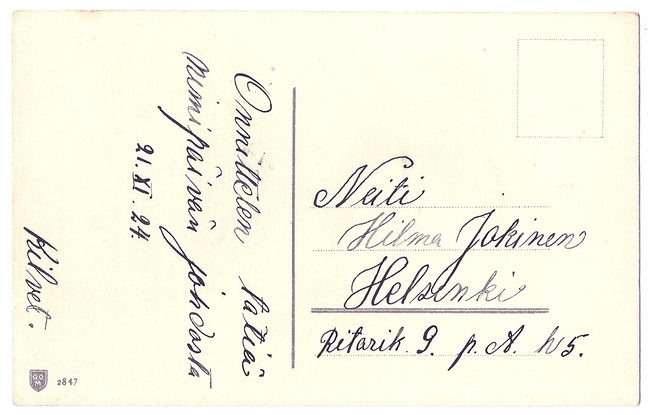 Onnittelen tätiä
nimipäivän johdosta
21. XI. 24.
Kilvet.
Neiti
Hilma Jokinen
Helsinki
Ritarik. 9. p. A. h5.
GOM
2847